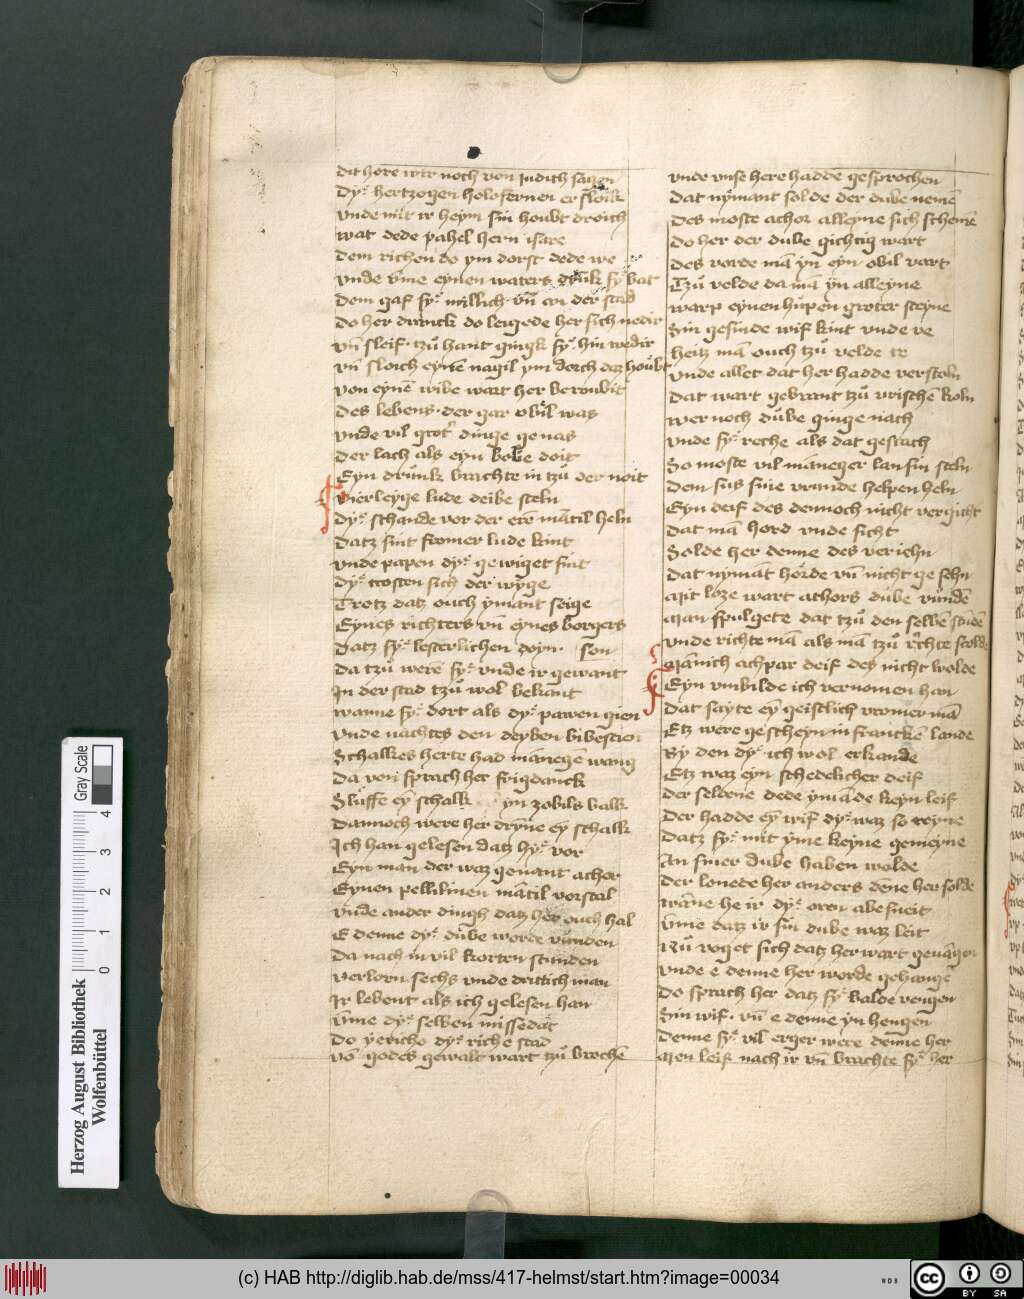 dit hore wir noch von Judith sagen
Dyͤ hertzogen holofernen er sloich
vnde mit ir heym sin houbt droich
wat dede yahel hern isare
Dem richen do ym dorst dede we
vnde vm̄e eynen waters drūk sy bat
Dem gaf syͤ millich vn̄ an der stad
Do her dranck do leigede her sich nedir
vn̄ sleif tzuͦ hant gingk syͤ hin wedir
vn̄ sloich eynē nagil ym dorch datz houbt
von eynē wibe wart her beroubit
Des lebens der gar obil was
vnde vil groter dinge genas
Der lach als eyn bobe doit
Eyn drunk brachte in tzuͦ der noit
vierleyge lude deibe steln
Dyͤ schande vor der ere māttil heln
Datz sint fromer lude kint
vnde papen dyͤ gewiget sint
Dyͤ trosten sich der wyge
Trotz datz ouch ymant seige
Eynes richters vn̄ eynes borgers son
Datz syͤ lesterlichen doyn
Da tzuͦ were syͤ vnde ir gewant
In der stad tzuͦ wol bekant
wanne syͤ dort als dyͤ pawen gien
vnde nachtes den deyben bibestien
Schalkes herte had mānegē wang
Da von sprach her frigdanck
Sluffe ey schalk yn zobils balk
Dannoch were her dryne ey schalk
Ich han gelesen datz hyͤ vor
Eyn man der waz genant achor
Eynen pellilinen māttil vorstal
vnde ander dingh datz her ouch hal
E denne dyͤ dube worde vunden
Da nach in vil korten stunden
verlorn sechs vnde drittich man
Ir lebent als ich gelesen han
vm̄e dyͤ selben missedat
Do yericho dyͤ riche stad
von godes gewalt wart tzuͦ brochē
vnde vnse here hadde gesprochen
Dat nymant solde der dube nemē
Des moste achor alleyne sich schemē
Do her der dube gichtig wart
Des vorde mā yn eyn obil vart
Tzuͦ velde da mā yn alleyne
warp eynen hupen groter steyne
Sin gesinde wif kint vnde ve
heitz mā ouch tzuͦ velde te
vnde allet dat her hadde verstoln
Dat wart gebrant tzuͦ vrischē koln
wer noch dube ginge nach
vnde syͤ reche als dat geschach
So moste vil māneger lan sin steln
Dem sus sine vrunde helpen heln
Eyn deif des dennoch nicht vergicht
Dat mā hord vnde sicht
Solde her denne des veriehn
Dat nymāt horde vn̄ nicht gesehn
Mit loze wart achors dube vundē
Man spulgete dat tzuͦ den selbē stūdē
vnde richte mā als mā tzuͦ rechte solde
Mānich achpar deif des nicht wolde
Eyn vmbilde ich vernomen han
Dat sayte ey geistlich vromer mā
Etz were gescheyn in franckē lande
By den dyͤ ich wol erkande
Etz waz eyn schedelicher deif
Der seldene dede ymāde keyn leif
Der hadde ey wif dyͤ waz so reyne
Datz syͤ mit yme keyne gemeyne
An siner dube haben wolde
Der lonede her anders dēne her solde
wāne he ir dyͤ oren abesneit
vm̄e datz ir sin dube waz leit
Nuͦ voget sich datz her wart gevāgen
vnde e denne her worde gehange
Do sprach her datz syͤ balde vengen
Sin wif vn̄ e denne yn hengen
Denne syͤ vil erger were denne her
Men leif nach ir vn̄ brachte syͤ her
Herzog August Bibliothek
Wolfenbüttel
0 1 2 3 4
Gray Scale
(c) HAB http://diglib.hab.de/mss/417-helmst/start.htm?image=00034
WDB
cc
BY SA